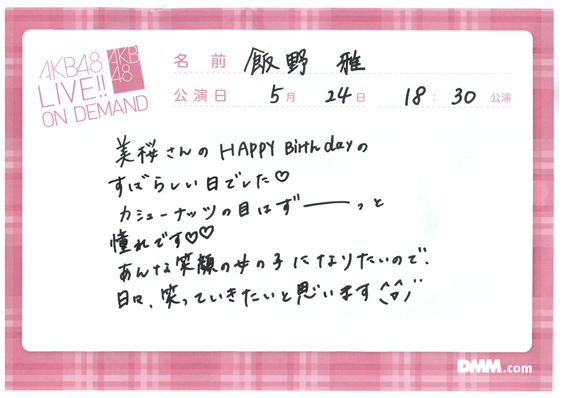 AKB48
LIVE!!
ON DEMAND
AKB
48
名前 飯野 雅
公演日 5月 24日 18:30 公演
美桜さんの HAPPY Birthdayの
すばらしい日でした♡
カシューナッツの目はずーーーっと
憧れです♡♡
あんな笑顔の女の子になりたいので、
日々、笑っていきたいと思います
DMM.com